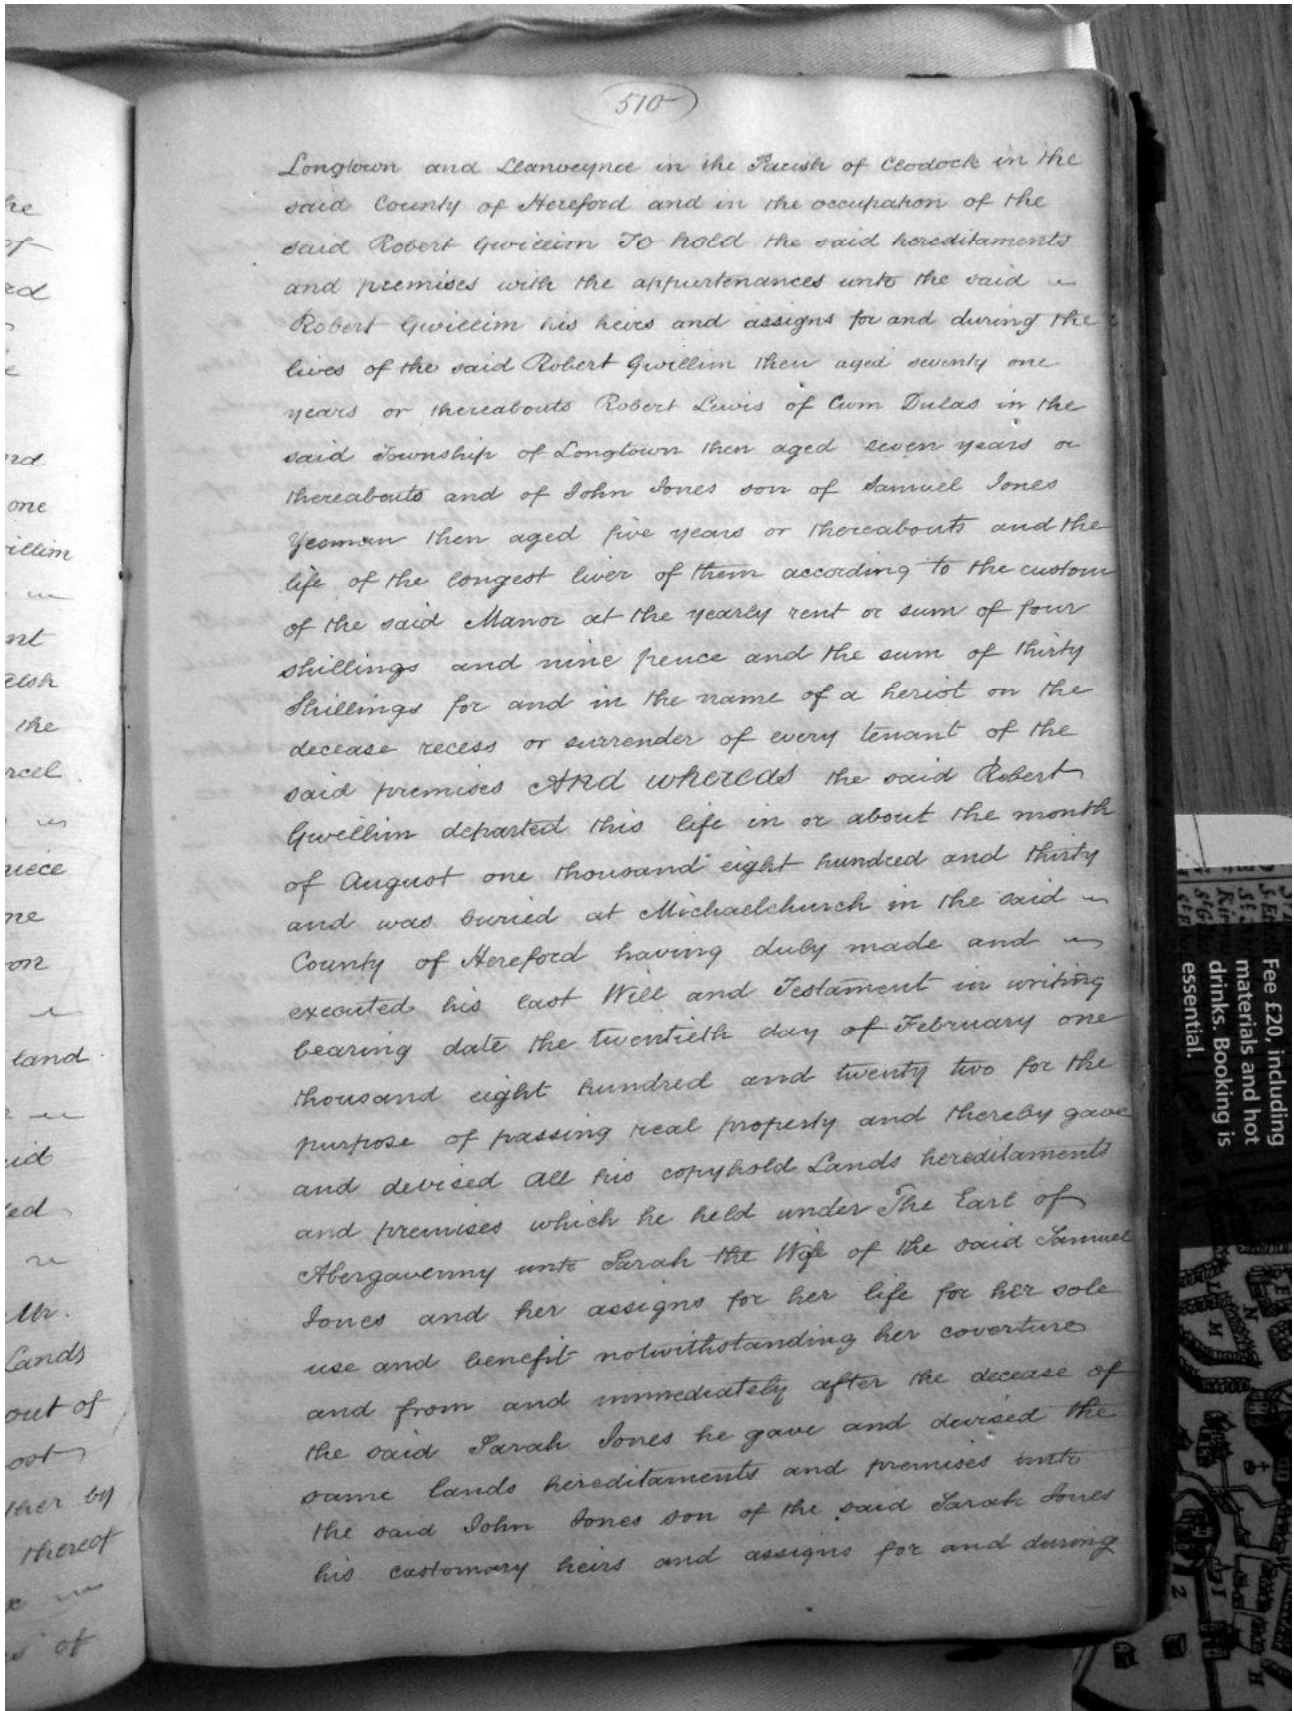 510
Longtown and Llanveynoe in the Parish of Clodock in the
said County of Hereford and in the occupation of the
said Robert Gwillim To hold the said hereditaments
and premises with the appurtenances unto the said
Robert Gwillim his heirs and assigns for and during the
lives of the said Robert Gwillim then aged seventy one
years or thereabouts Robert Lewis of Cwm Dulas in the
said Township of Longtown then aged seven years or
thereabouts and of John Jones son of Samuel Jones
Yeoman then aged five years or thereabouts and the
life of the longest liver of them according to the custom
of the said Manor at the yearly rent or sum of four
shillings and nine pence and the sum of thirty
Shillings for and in the name of a heriot on the
decease recess or surrender of every tenant of the
said premises And whereas the said Robert
Gwillim departed this life in or about the month
of August one thousand eight hundred and thirty
and was buried at Michaelchurch in the said
County of Hereford having duly made and
executed his last Will and Testament in writing
bearing date the twentieth day of February one
thousand eight hundred and twenty two for the
purpose of passing real property and thereby gave
and devised all his copyhold Lands hereditaments
and premises which he held under The Earl of
Abergavenny unto Sarah the Wife of the said Samuel
Jones and her assigns for her life for her sole
use and benefit notwithstanding her coverture
and from and immediately after the decease of
the said Sarah Jones he gave and devised the
same lands hereditaments and premises unto
the said John Jones son of the said Sarah Jones
his customary heirs and assigns for and during
he
of
one
illim
nt
elsh
the
rcel
niece
ne
on
land
id
ed
Mr.
Lands
out of
ther by
thereof
of
Fee £20, including
materials and hot
drinks. Booking is
essential.